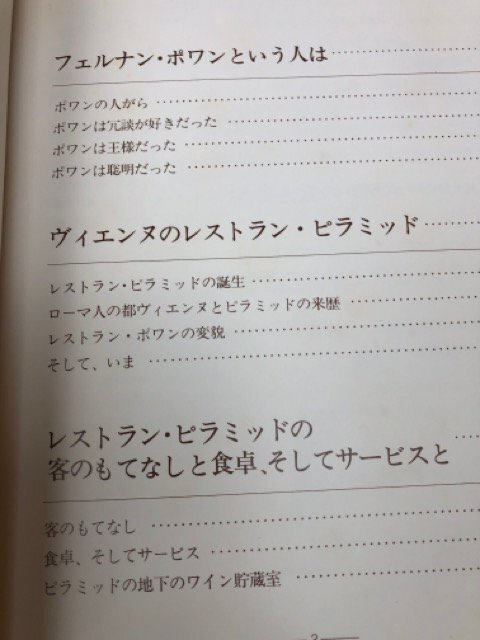 フェルナン・ポワンという人は
ポワンの人がら
ポワンは冗談が好きだった
ポワンは王様だった
ポワンは聡明だった
ヴィエンヌのレストラン・ピラミッド
レストラン・ピラミッドの誕生
ローマ人の都ヴィエンヌとピラミッドの来歴
レストラン・ポワンの変貌
そして、いま
レストラン・ピラミッドの
客のもてなしと食卓、そしてサービスと
客のもてなし
食卓、そしてサービス
ピラミッドの地下のワイン貯蔵室